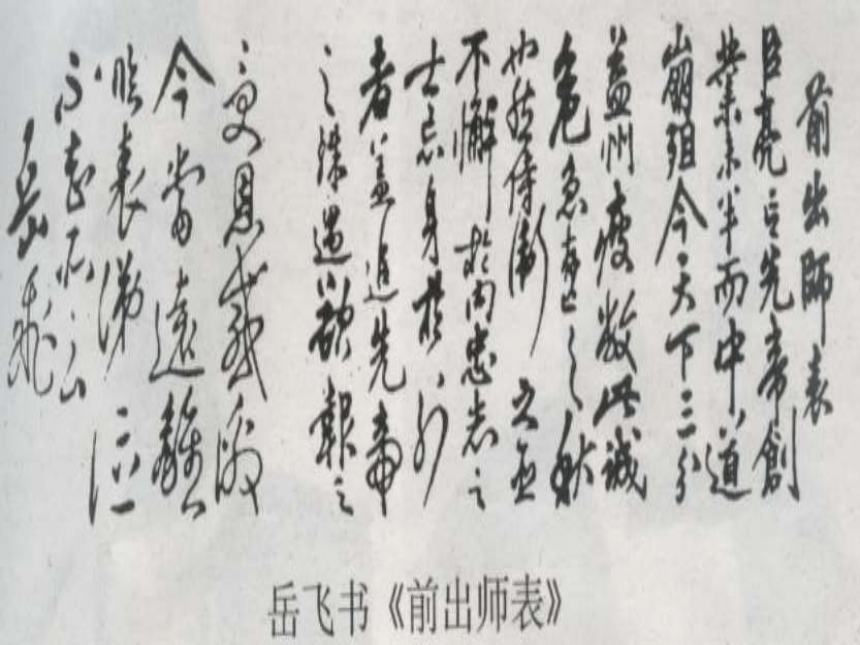 前出師表
臣亮言先帝創
業未半而中道
崩殂今天下三分
益州疲敝此誠
危急存亡之秋
也然侍衛之臣
不懈於內忠志之
士忘身於外
者蓋追先帝
之殊遇欲報之
受恩感激
今當遠離
臨表涕泣
不知所云
岳飛
岳飞书《前出师表》